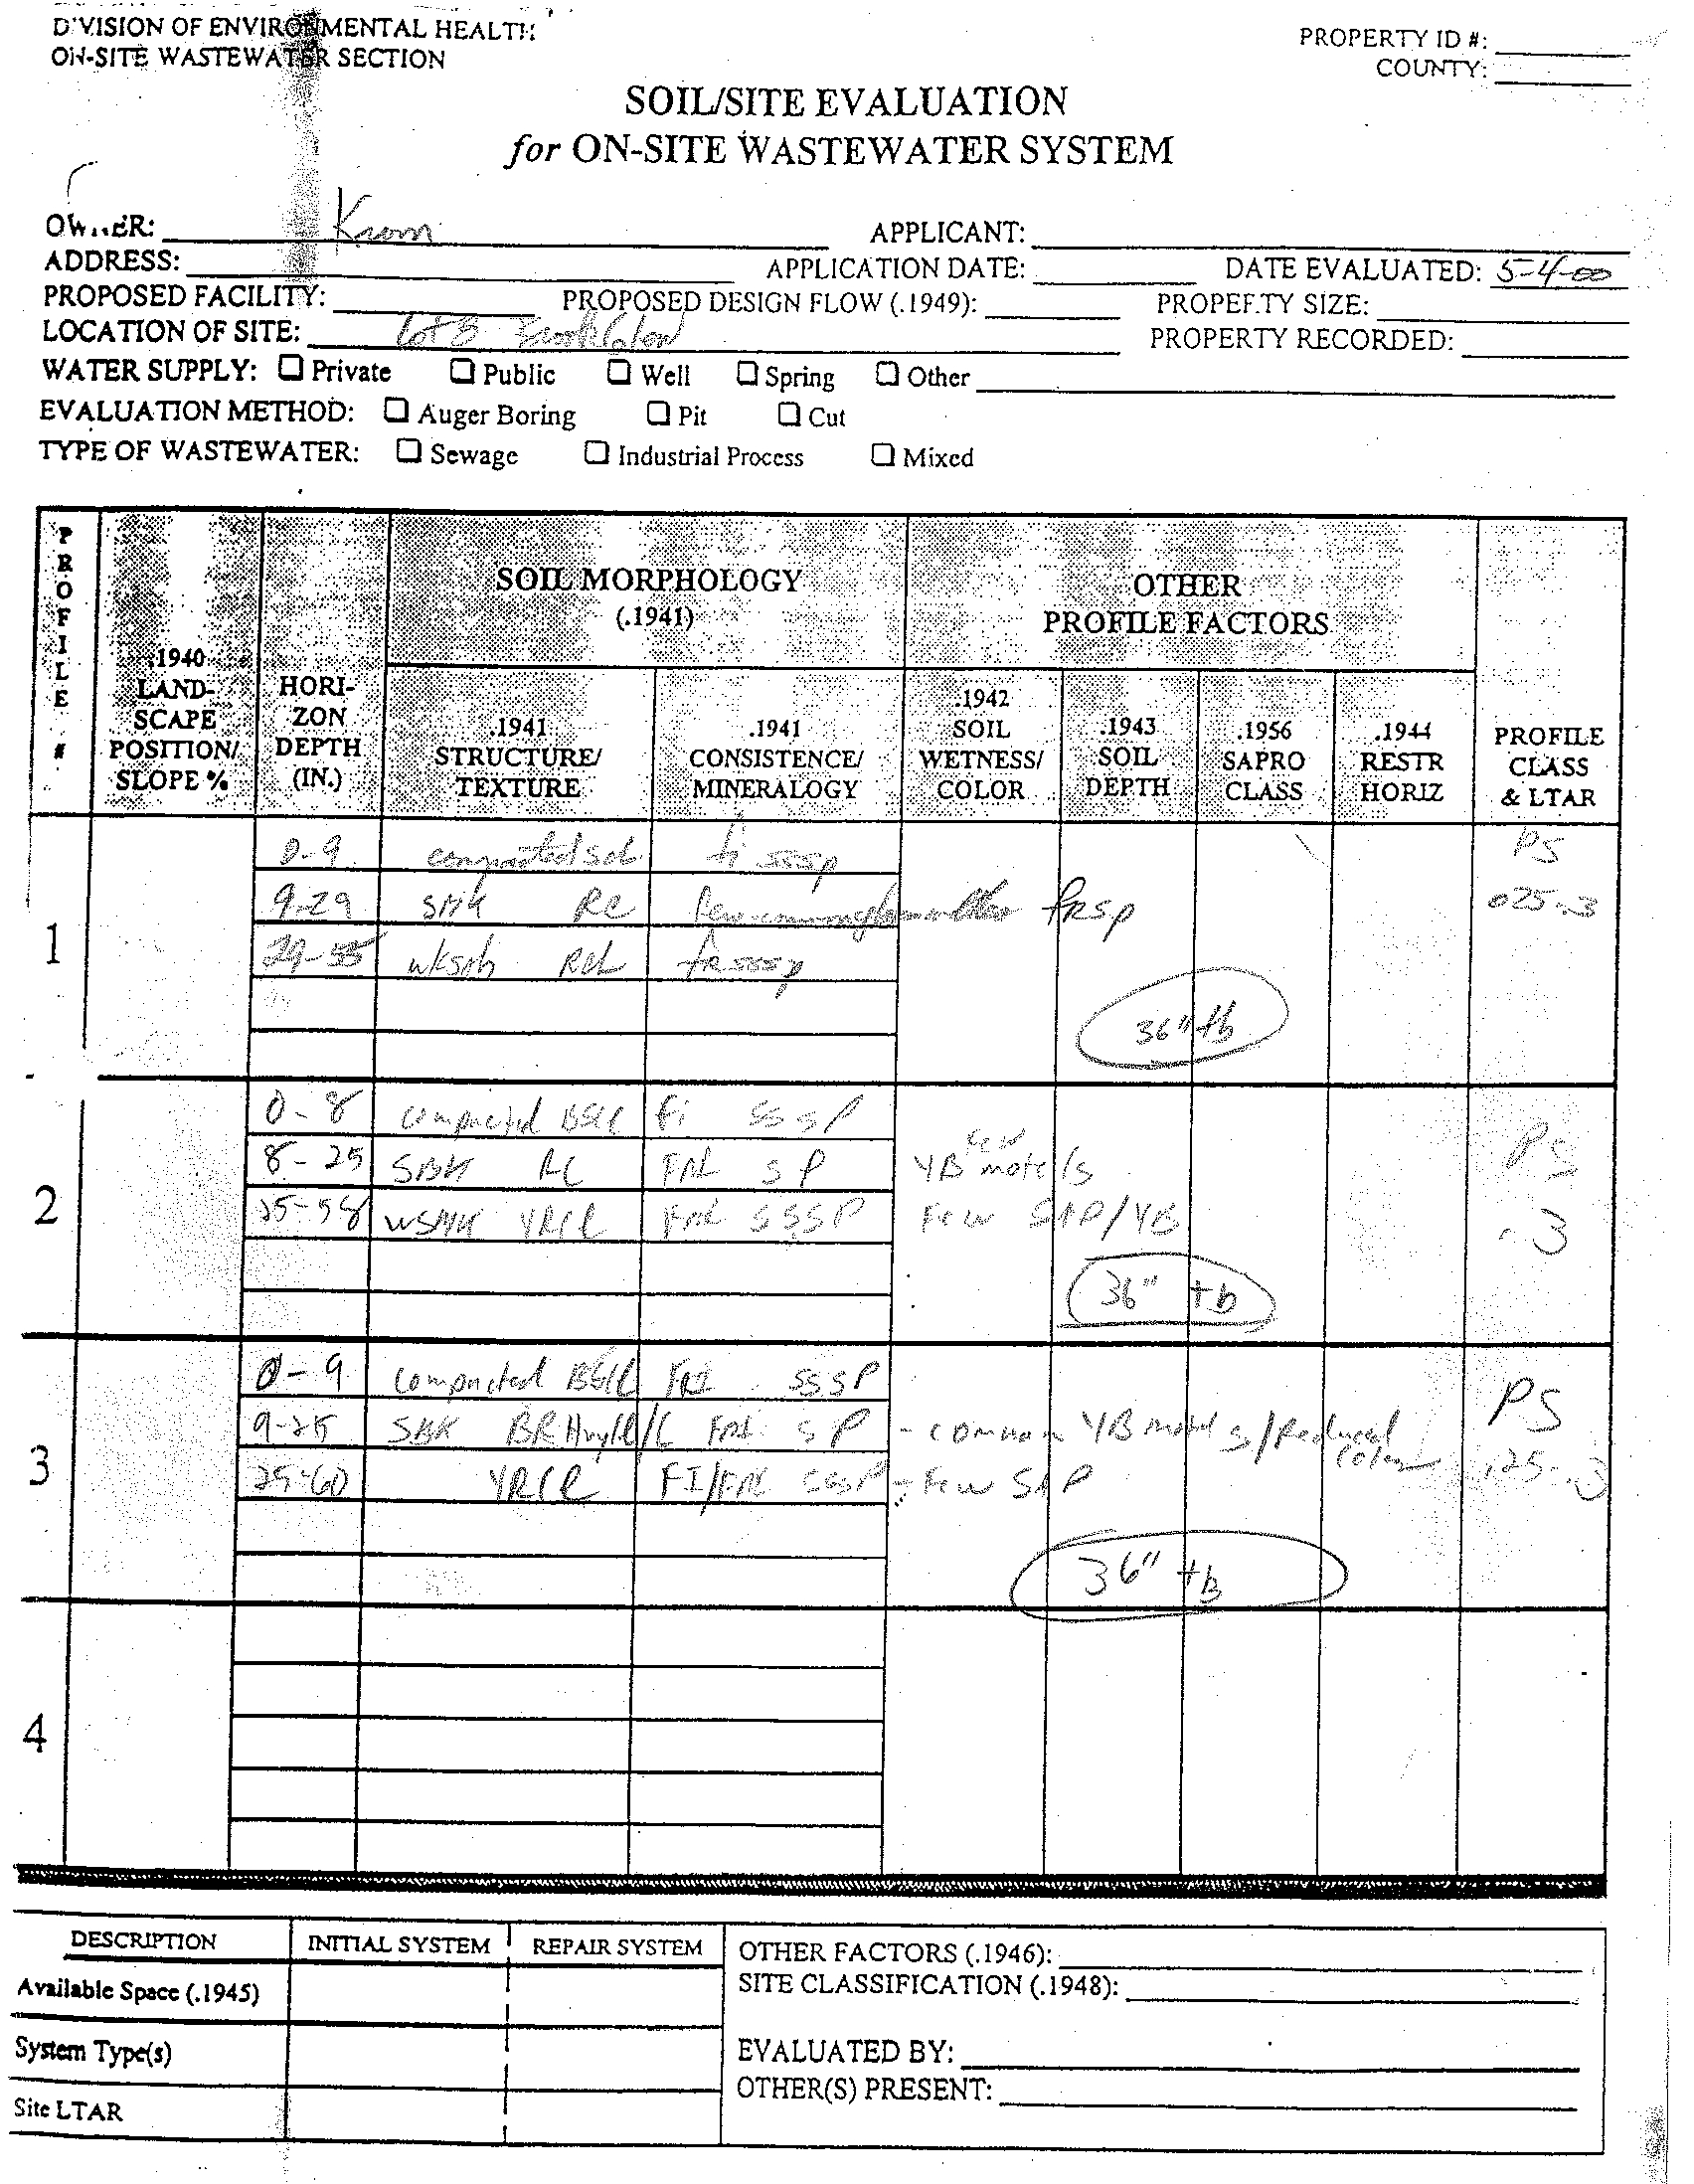 DIVISION OF ENVIRONMENTAL HEALTH
ON-SITE WASTEWATER SECTION
PROPERTY ID #:
COUNTY:
SOIL/SITE EVALUATION
for ON-SITE WASTEWATER SYSTEM
OWNER: Krom
APPLICANT:
ADDRESS:
APPLICATION DATE:
DATE EVALUATED: 5-4-00
PROPOSED FACILITY:
PROPOSED DESIGN FLOW (.1949):
PROPERTY SIZE:
LOCATION OF SITE: Lot
PROPERTY RECORDED:
WATER SUPPLY: ☐ Private ☐ Public ☐ Well ☐ Spring ☐ Other
EVALUATION METHOD: ☐ Auger Boring ☐ Pit ☐ Cut
TYPE OF WASTEWATER: ☐ Sewage ☐ Industrial Process ☐ Mixed
PROFILE #
.1940 LAND-SCAPE POSITION/ SLOPE %
HORI-ZON DEPTH (IN.)
SOIL MORPHOLOGY
(.1941)
OTHER
PROFILE FACTORS
.1941 STRUCTURE/ TEXTURE
.1941 CONSISTENCE/ MINERALOGY
.1942 SOIL WETNESS/ COLOR
.1943 SOIL DEPTH
.1956 SAPRO CLASS
.1944 RESTR HORIZ
PROFILE CLASS & LTAR
1
0-9 compacted scl fi sssp PS
9-29 SBK RC frsp .025-.3
29-55 wksbk RCL fr sssp
36" tb
2
0-8 compacted BSCL Fi SSSP
8-25 SBK RC FRI SP few YB motels PS
25-58 WSBK YRCL FRI SSSP Few SAP/YB .3
36" tb
3
0-9 compacted BSCL FRI SSSP PS
9-25 SBK BR HvyCL/C FRI SP - common YB motels/Reduced Colors
25-60 YRCL FI/FRI SSSP - Few SAP .25-.3
36" tb
4
DESCRIPTION INITIAL SYSTEM REPAIR SYSTEM
Available Space (.1945)
System Type(s)
Site LTAR
OTHER FACTORS (.1946):
SITE CLASSIFICATION (.1948):
EVALUATED BY:
OTHER(S) PRESENT: